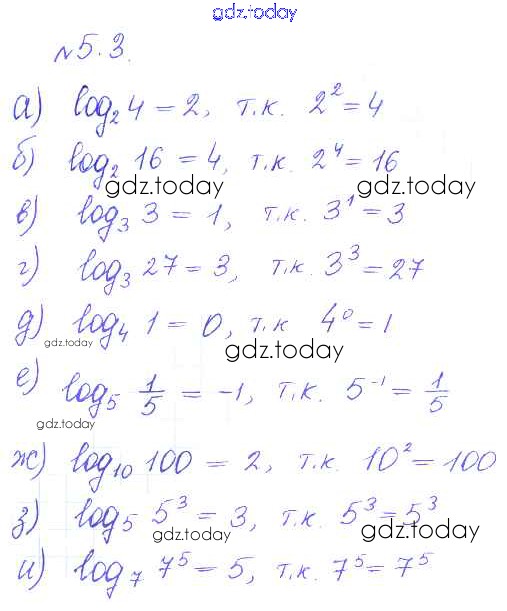 gdz.today
№5.3.
а) log₂4 = 2, т.к. 2² = 4
б) log₂ 16 = 4, т.к. 2⁴ = 16
gdz.today gdz.today
в) log₃ 3 = 1, т.к. 3¹ = 3
г) log₃ 27 = 3, т.к. 3³ = 27
д) log₄ 1 = 0, т.к 4⁰ = 1
gdz.today gdz.today
е) log₅ 1/5 = -1, т.к. 5⁻¹ = 1/5
gdz.today
ж) log₁₀ 100 = 2, т.к. 10² = 100
з) log₅ 5³ = 3, т.к. 5³ = 5³
gdz.today gdz.today
и) log₇ 7⁵ = 5, т.к. 7⁵ = 7⁵